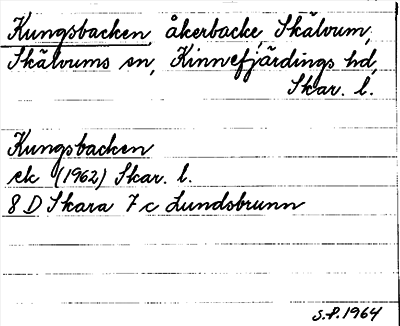 Kungsbacken, åkerbacke, Skälvum,
Skälvums sn, Kinnefjärdings hd,
Skar. l.
Kungsbacken
ek (1962) Skar. l.
8 D Skara 7 c Lundsbrunn
S.F. 1964